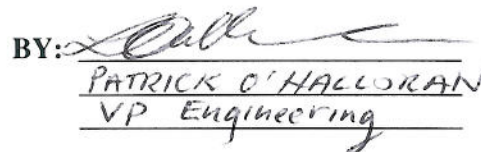 BY:
PATRICK O'HALLORAN
VP Engineering